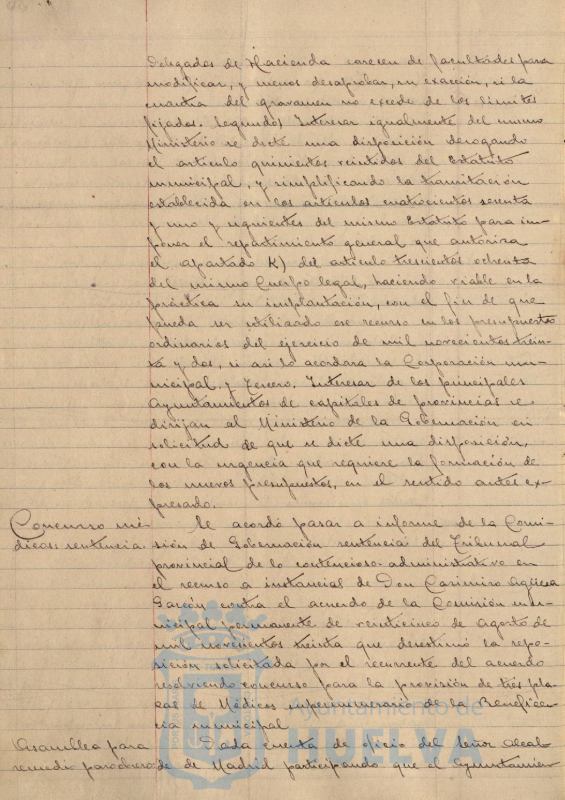 Delegados de Hacienda carecen de facultades para
modificar, y menos desaprobar, su exacción, si la
cuantia del gravamen no excede de los limites
fijados. Segundo: Interesar igualmente del mismo
Ministerio se dicte una disposición derogando
el articulo quinientos veintidos del Estatuto
municipal, y simplificando la tramitación
establecida en los articulos cuatrocientos sesenta
y uno y siguientes del mismo Estatuto para im-
poner el repartimiento general que autoriza
el apartado K) del articulo trescientos ochenta
del mismo Cuerpo legal, haciendo viable en la
práctica su implantación, con el fin de que
pueda ser utilizado ese recurso en los presupuestos
ordinarios del ejercicio de mil novecientos trein-
ta y dos, si asi lo acordara la Corporación mu-
nicipal, y Tercero. Interesar de los principales
Ayuntamientos de capitales de provincias se
dirijan al Ministerio de la Gobernación en
solicitud de que se dicte una disposición,
con la urgencia que requiere la formación de
los nuevos presupuestos, en el sentido antes ex-
presado.
Concurso mé-
dicos: sentencia.
Se acordó pasar a informe de la Comi-
sión de Gobernación sentencia del Tribunal
provincial de lo contencioso-administrativo en
el recurso a instancias de Don Casimiro
Garzón contra el acuerdo de la Comisión mu-
nicipal permanente de veinticinco de Agosto de
mil novecientos treinta que desestimó la repo-
sición solicitada por el recurrente del acuerdo
resolviendo concurso para la provisión de tres pla-
zas de Médicos supernumerario de la Beneficen-
cia municipal
Asamblea para
remedio paro obrero
Dada cuenta de oficio del señor Alcal-
de de Madrid participando que el Ayuntamien-
Ayuntamiento de
HUELVA